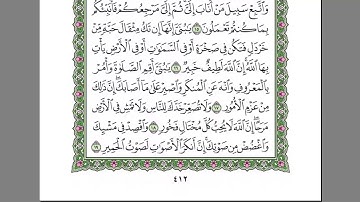 وَاتَّبِعْ سَبِيلَ مَنْ أَنَابَ إِلَيَّ ثُمَّ إِلَيَّ مَرْجِعُكُمْ فَأُنَبِّئُكُم
بِمَا كُنتُمْ تَعْمَلُونَ ١٥ يَٰبُنَيَّ إِنَّهَآ إِن تَكُ مِثْقَالَ حَبَّةٍ مِّنْ
خَرْدَلٍ فَتَكُن فِي صَخْرَةٍ أَوْ فِي السَّمَٰوَٰتِ أَوْ فِي الْأَرْضِ يَأْتِ
بِهَا اللَّهُ إِنَّ اللَّهَ لَطِيفٌ خَبِيرٌ ١٦ يَٰبُنَيَّ أَقِمِ الصَّلَوٰةَ وَأْمُرْ
بِالْمَعْرُوفِ وَانْهَ عَنِ الْمُنكَرِ وَاصْبِرْ عَلَىٰ مَآ أَصَابَكَ إِنَّ ذَٰلِكَ
مِنْ عَزْمِ الْأُمُورِ ١٧ وَلَا تُصَعِّرْ خَدَّكَ لِلنَّاسِ وَلَا تَمْشِ فِي الْأَرْضِ
مَرَحًا إِنَّ اللَّهَ لَا يُحِبُّ كُلَّ مُخْتَالٍ فَخُورٍ ١٨ وَاقْصِدْ فِي مَشْيِكَ
وَاغْضُضْ مِن صَوْتِكَ إِنَّ أَنكَرَ الْأَصْوَٰتِ لَصَوْتُ الْحَمِيرِ ١٩
٤١٢